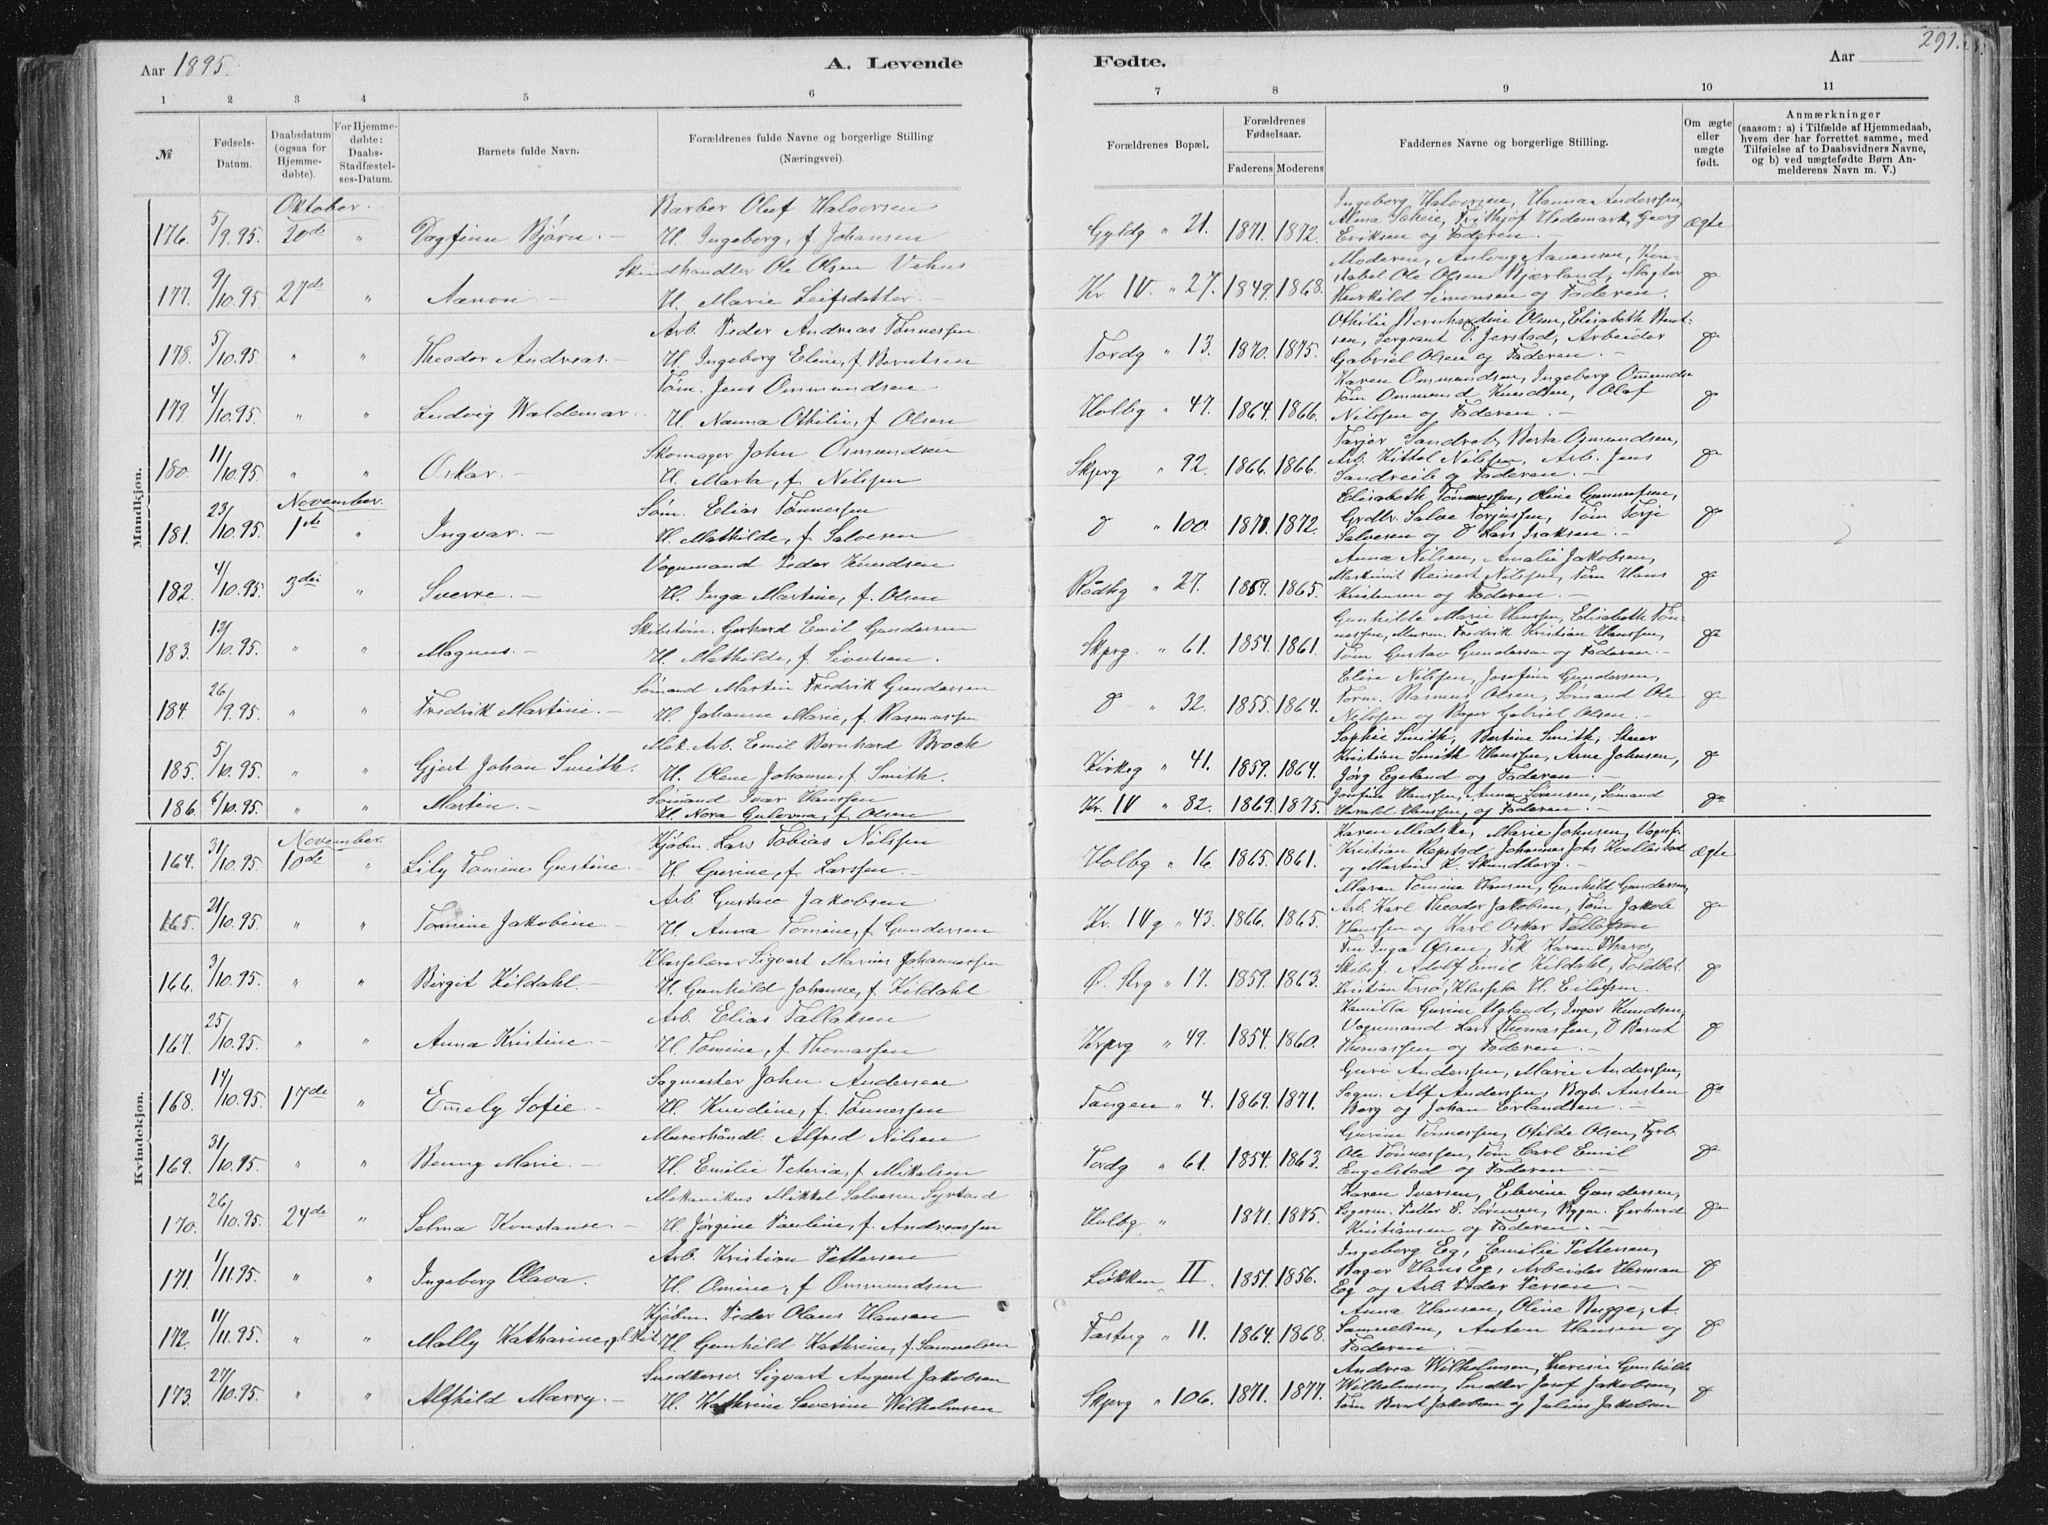 291.
Aar 1895.
A. Levende Fødte.
Aar
1 2 3 4 5 6 7 8 9 10 11
№
Fødsels-Datum.
Daabsdatum (ogsaa for Hjemmedøbte).
For Hjemmedøbte: Daabs-Stadfæstelses-Datum.
Barnets fulde Navn.
Forældrenes fulde Navne og borgerlige Stilling (Næringsvei).
Forældrenes Bopæl.
Forældrenes Fødselsaar.
Faderens Moderens
Faddernes Navne og borgerlige Stilling.
Om ægte eller uægte født.
Anmærkninger
(saasom: a) i Tilfælde af Hjemmedaab, hvem der har forrettet samme, med Tilføielse af to Daabsvidners Navne, og b) ved uægtefødte Børn Anmelderens Navn m. V.)
Mandkjøn.
Oktober.
176. 5/9.95. 20de " Dagfinn Bjørn. — Barber Oluf Halvorsen H. Ingeborg, f. Johansen Gyldg " 21. 1871. 1872. Ingeborg Halvorsen, Hanna Anderssen, Alma Scheie, Frithjof Hedemark, Georg Eriksen og Faderen. — ægte
177. 9/10.95 27de " Aanon. — Skindhandler Ole Olsen Vehus H. Marie Leifsdatter — Kr. IV. " 27. 1849. 1868. Moderen, Aanensen, Konstabel Ole Olsen Bjærland, Simonsen og Faderen. do
178. 5/10.95 " " Theodor Andreas. — Arb. Peder Andreas Tønnessen H. Ingeborg Eline, f. Berntsen Tordg " 13. 1870. 1875. Othilie Bernhardine Olsen, Elisabeth Berntsen, Sergeant O. Jerstad, Arbeider Gabriel Olsen og Faderen. — do
179 4/10.95. " " Ludvig Waldemar. Tøm. Jens Ommundsen H. Nanna Othilie, f. Olsen Holbg " 47. 1864. 1866. Karen Ommundsen, Ingeborg Tøm Ommund Knudsen, Olaf Nilssen og Faderen. — do
180. 11/10.95 " " Oskar. — Skomager John Osmundsen H. Marta, f. Nilssen Skjerg " 92. 1866. 1866. Tarjer Berta Osmundsen, Arb. Kittel Nilssen, Arb. Jens og Faderen. — do
November.
181. 23/10.95. 1ste " Ingvar. — Søm. Elias Tønnessen H. Mathilde, f. Salvesen do " 100. 1871. 1872. Elisabeth Tønnessen, Oline Salve Torjussen, Tøm Torje Salvesen og do Lars Isaksen. — do
182. 4/10.95. 3die " Sverre. — Vognmand Peder Knudsen H. Inga Martine, f. Olsen Rådhg " 27. 1859. 1865. Anna Nilsen, Amalie Jakobsen, Maskinist Reinert Nilssen, Tøm Hans Kristensen og Faderen. — do
183. 13/10.95. " " Magnus. — Skibstøm. Gerhard Emil Gundersen H. Mathilde, f. Sivertsen. Skjerg. " 61. 1854. 1861. Gunhilde Marie Hanssen, Elisabeth Tønnessen, Fredrik Kristian Hanssen, Tøm Gustav Gundersen og Faderen. — do
184. 26/9.95. " " Fredrik Martin. — Sømand Martin Fredrik Gundersen H. Johanne Marie, f. Rasmussen do " 32. 1855. 1864. Elise Nilssen, Josefine Gundersen, Tøm. Rasmus Olsen, Sømand Ole Nilssen og Bager Gabriel Olsen. — do
185. 5/10.95. " " Gjert Johan Smith. Mek. Arb. Emil Bernhard Brock H. Olene Johanne, f. Smith. Kirkeg " 41. 1859. 1864. Sophie Smith, Bertine Smith, Kristian Smith Hanssen, Arne Johnsen, Jørg Egeland og Faderen. — do
186. 6/10.95. " " Martin. — Sømand Ivar Hanssen H. Nora Gulovna, f. Olsen Kr. IV " 82. 1869. 1875. Josefine Hanssen, Anna Sørensen, Sømand Harald Hanssen, og Faderen. — do
Kvindekjøn.
November.
164. 31/10.95 10de " Lily Tomine Gustine. Kjøbm. Lars Tobias Nilssen H. Gurine, f. Larssen. Holbg " 16 1865. 1861. Karen Marie Johnsen, Kristian Repstad, og Martin K. Skundberg. — ægte
165. 21/10.95 " " Tomine Jakobine. — Arb. Gustav Jakobsen H. Anna Tomine, f. Gundersen Kr. IVg " 43. 1866. 1865. Maren Tomine Hansen, Gunhild Gundersen, Arb. Karl Theodor Jakobsen, Tøm Jakob Hanssen og Karl Oskar Tellefsen do
166. 3/10.95. " " Birgit Kildahl. — Klasselærer Sigvart Marius Johannessen H. Gunhild Johanne, f. Kildahl Ø. Strg " 17. 1859. 1863. Fru Inga Olsen, Frk Karen Skibsf. Adolf Emil Kildahl, Toldbet. Kristian H. Eilifsen. do
167. 25/10.95. " " Anna Kristine. — Arb. Elias Tallaksen H. Tomine, f. Thomassen " 49. 1854. 1860. Kamilla Gurine Ugland, Inger Knudsen, Vognmand Lars Thomassen, do Bernt Thomassen og Faderen. — do
168. 14/10.95. 17de " Emely Sofie — Sagmester John Andersen H. Knudine, f. Tønnessen Tangen " 4. 1869. 1871. Guro Anderssen, Marie Anderssen, Sagm. Alf Anderssen, Bogb. Austen Berg og Johan Erlandsen. — do
169. 31/10.95. " " Benny Marie. — Murerhåndl. Alfred Nilsen H. Emilie Peteria, f. Mikalsen Tordg " 61. 1854. 1863. Gurine Tønnessen, Otilde Olsen, Fyrb. Ole Tønnessen, Tøm Carl Emil Engelstad og Faderen. — do
170. 26/10.95. 24de " Selma Konstanse. — Mekanikus Mikkel Salvesen H. Jørgine Pauline, f. Andreassen Holbg " 1871. 1875. Karen Iversen, Gundersen, Petter E. Sørensen, Bygm. Gerhard Kristiansen og Faderen. — do
171. 1/11.95. " " Ingeborg Olava. Arb. Kristian Pettersen H. Omine, f. Ommundsen Løkken II. 1851. 1856. Ingeborg Eg, Emilie Pettersen, Bager Hans Eg, Arbeider Herman Eg og Arb. Peder Persen. — do
172. 11/11.95. " " Mally Katharine, Kjøbm. Peder Olaus Hansen H. Gunhild Kathrine, f. Samuelsen Fæstng " 11. 1864. 1868. Anna Hansen, Oline Bugge, A. Samuelsen, Anton Hansen og Faderen. — do
173. 27/10.95 " " Alfhild Marry. — Snedkersv. Sigvart August Jakobsen H. Kathrine Severine Wilhelmsen Skjerg " 106. 1871. 1877. Andrea Wilhelmsen, Theresie Gunhilde Wilhelmsen, Snedker Josef Jakobsen, Tøm Bernt Jakobsen og Julius Jakobsen do